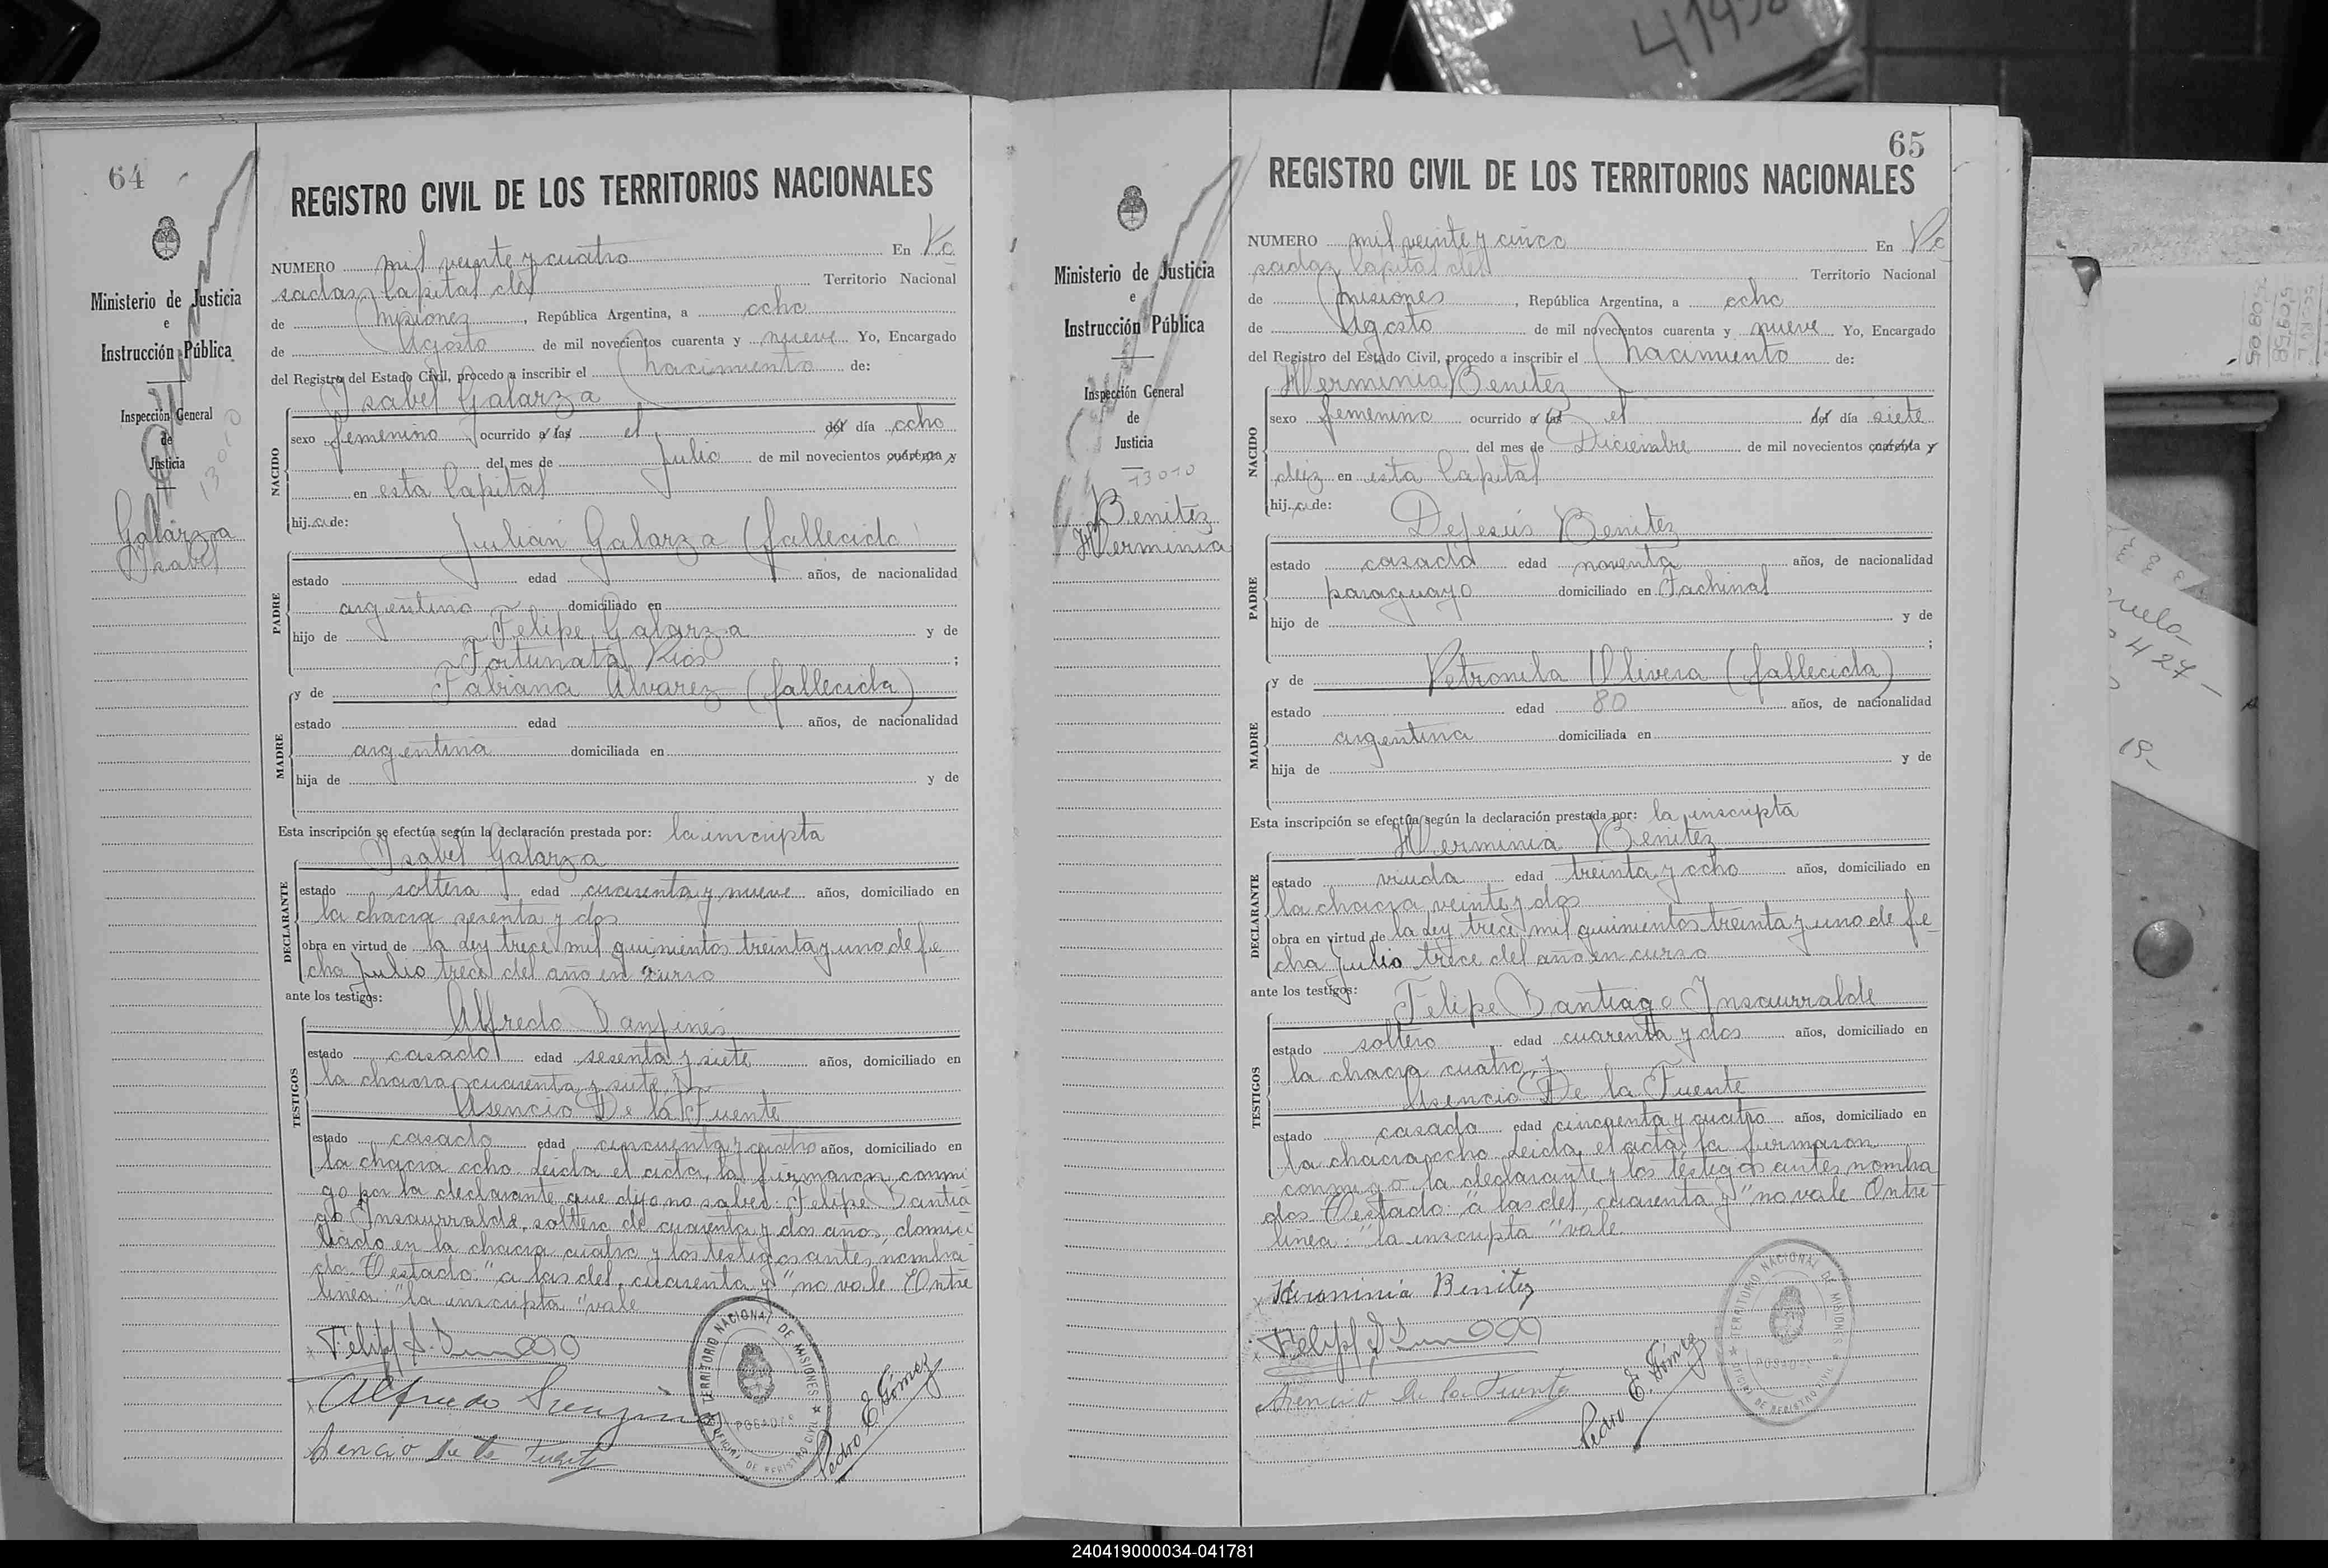 41950
64
Ministerio de Justicia
e
Instrucción Pública
Inspección General
de
Justicia
13010
Galarza
Isabel
REGISTRO CIVIL DE LOS TERRITORIOS NACIONALES
NUMERO mil veinte y cuatro En Po
sadas Capital del Territorio Nacional
de Misiones, República Argentina, a ocho
de Agosto de mil novecientos cuarenta y nueve Yo, Encargado
del Registro del Estado Civil, procedo a inscribir el nacimiento de:
Isabel Galarza
NACIDO
sexo femenino ocurrido a las el del día ocho
del mes de Julio de mil novecientos cuarenta y
en esta Capital
hija de:
Julián Galarza (fallecido)
PADRE
estado edad años, de nacionalidad
argentino domiciliado en
hijo de Felipe Galarza y de
Fortunata Rios ;
y de Fabiana Alvarez (fallecida)
MADRE
estado edad años, de nacionalidad
argentina domiciliada en
hija de y de
Esta inscripción se efectúa según la declaración prestada por: la inscripta
Isabel Galarza
DECLARANTE
estado soltera edad cuarenta y nueve años, domiciliado en
la chacra sesenta y dos
obra en virtud de la Ley trece mil quinientos treinta y uno de fe
cha Julio trece del año en curso
ante los testigos:
Alfredo
TESTIGOS
estado casado edad sesenta y siete años, domiciliado en
la chacra cuarenta y siete y
Asencio De la Fuente
estado casado edad cincuenta y cuatro años, domiciliado en
la chacra ocho Leida el acta, la firmaron conmi
go por la declarante que dijo no saber: Felipe Santia
go Insaurralde, soltero de cuarenta y dos años, domici
liado en la chacra cuatro y los testigos antes nombra
do. Testado: "a las del, cuarenta y" no vale Entre
linea: "la inscripta" vale
Alfredo
Asencio De la Fuente
Pedro E. Gómez
TERRITORIO NACIONAL DE MISIONES
POSADAS
OFICINA DE REGISTRO CIVIL
65
Ministerio de Justicia
e
Instrucción Pública
Inspección General
de
Justicia
13010
Benitez
Herminia
REGISTRO CIVIL DE LOS TERRITORIOS NACIONALES
NUMERO mil veinte y cinco En Po
sadas Capital del Territorio Nacional
de Misiones, República Argentina, a ocho
de Agosto de mil novecientos cuarenta y nueve Yo, Encargado
del Registro del Estado Civil, procedo a inscribir el nacimiento de:
Herminia Benitez
NACIDO
sexo femenino ocurrido a las el del día siete
del mes de Diciembre de mil novecientos cuarenta y
diez en esta Capital
hija de:
DeJesús Benitez
PADRE
estado casado edad noventa años, de nacionalidad
paraguayo domiciliado en Fachinal
hijo de y de
;
y de Petronila Olivera (fallecida)
MADRE
estado edad 80 años, de nacionalidad
argentina domiciliada en
hija de y de
Esta inscripción se efectúa según la declaración prestada por: la inscripta
Herminia Benitez
DECLARANTE
estado viuda edad treinta y ocho años, domiciliado en
la chacra veinte y dos
obra en virtud de la Ley trece mil quinientos treinta y uno de fe
cha Julio trece del año en curso
ante los testigos:
Felipe Santiago Insaurralde
TESTIGOS
estado soltero edad cuarenta y dos años, domiciliado en
la chacra cuatro y
Asencio De la Fuente
estado casado edad cincuenta y cuatro años, domiciliado en
la chacra ocho Leida el acta, la firmaron
conmigo la declarante y los testigos antes nombra
dos Testado: "a las del, cuarenta y" no vale Entre
linea: "la inscripta" vale
Herminia Benitez
Asencio De la Fuente
Pedro E. Gómez
TERRITORIO NACIONAL DE MISIONES
POSADAS
OFICINA DE REGISTRO CIVIL
240419000034-041781